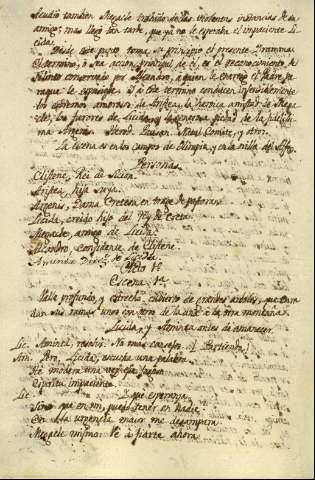 Acudió tambien Megacle trahido de las violentas instancias de su
amigo; mas llegó tan tarde, que ya no le esperaba el impaciente Li-
cida.
Desde este punto toma su principio el presente Dramma:
El termino, ó sea accion principal de él, es el reconocimiento de
Filinto conservado por Alcandro, á quien le entregó el Padre pa-
raque le expusiese. Y á este termino conducen
los extremos amorosos de Aristea, la heroica amistad de Mega-
cle, los furores de Licida, y la generosa piedad de la fidelisi-
ma Argene. Herod. Pausan. Natal Comite, y otros.
La escena es en los campos de Olimpia, y en la orilla del Alfeo.
Personas.
Clistene, Rei de Sicion.
Aristea, hija suya.
Argene, Dama Cretense en trage de pastora.
Licida, creido hijo del Rey de Creta.
Megacle, amigo de Licida.
Alcandro, Confidente de Clistene.
Aminta de Licida.
Acto 1º
Escena 1ª
Valle profundo, y estrecho, cubierto de grandes arboles, que
dan sus ramas unos con otros de la una á la otra montaña.
Licida, y Aminta antes de amanecer.
Lic. resolvi. No mas consejos. Al
Am. Licida, escucha una palabra.
modera una vez
Espiritu impaciente.
Lic. que esperanza
Sino que en mi, puedo tener en nadie?
En la urgencia maior me desampara
Megacle mismo. Ve á fiarte ahora